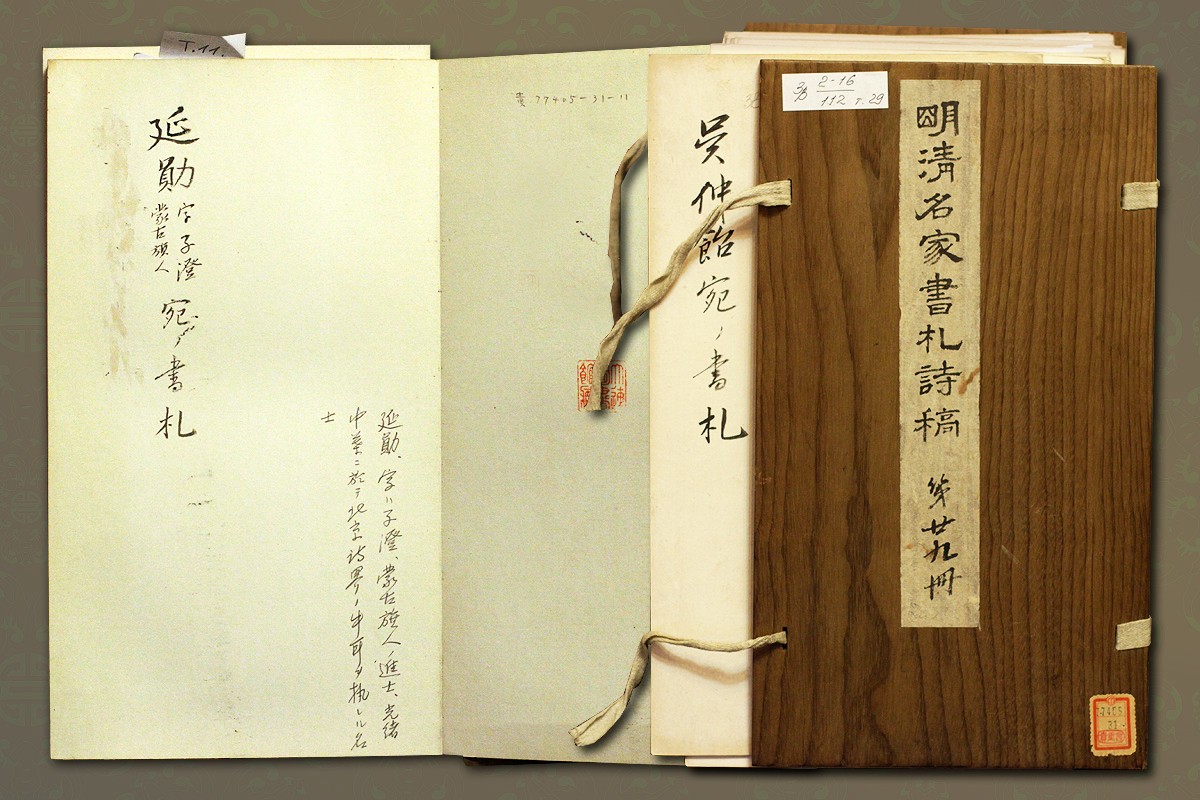 T.11.
延勛 字子澄 蒙古旗人 宛ノ書札
延勛、字ハ子澄、蒙古旗人進士、光緒
中葉ニ於テ北京詩界ノ牛耳ヲ執レル名
士
貴 77405-31-11
吴仲飴宛ノ書札
明清名家書札詩稿 第廿九冊
2-16
112 т.29
77405
31